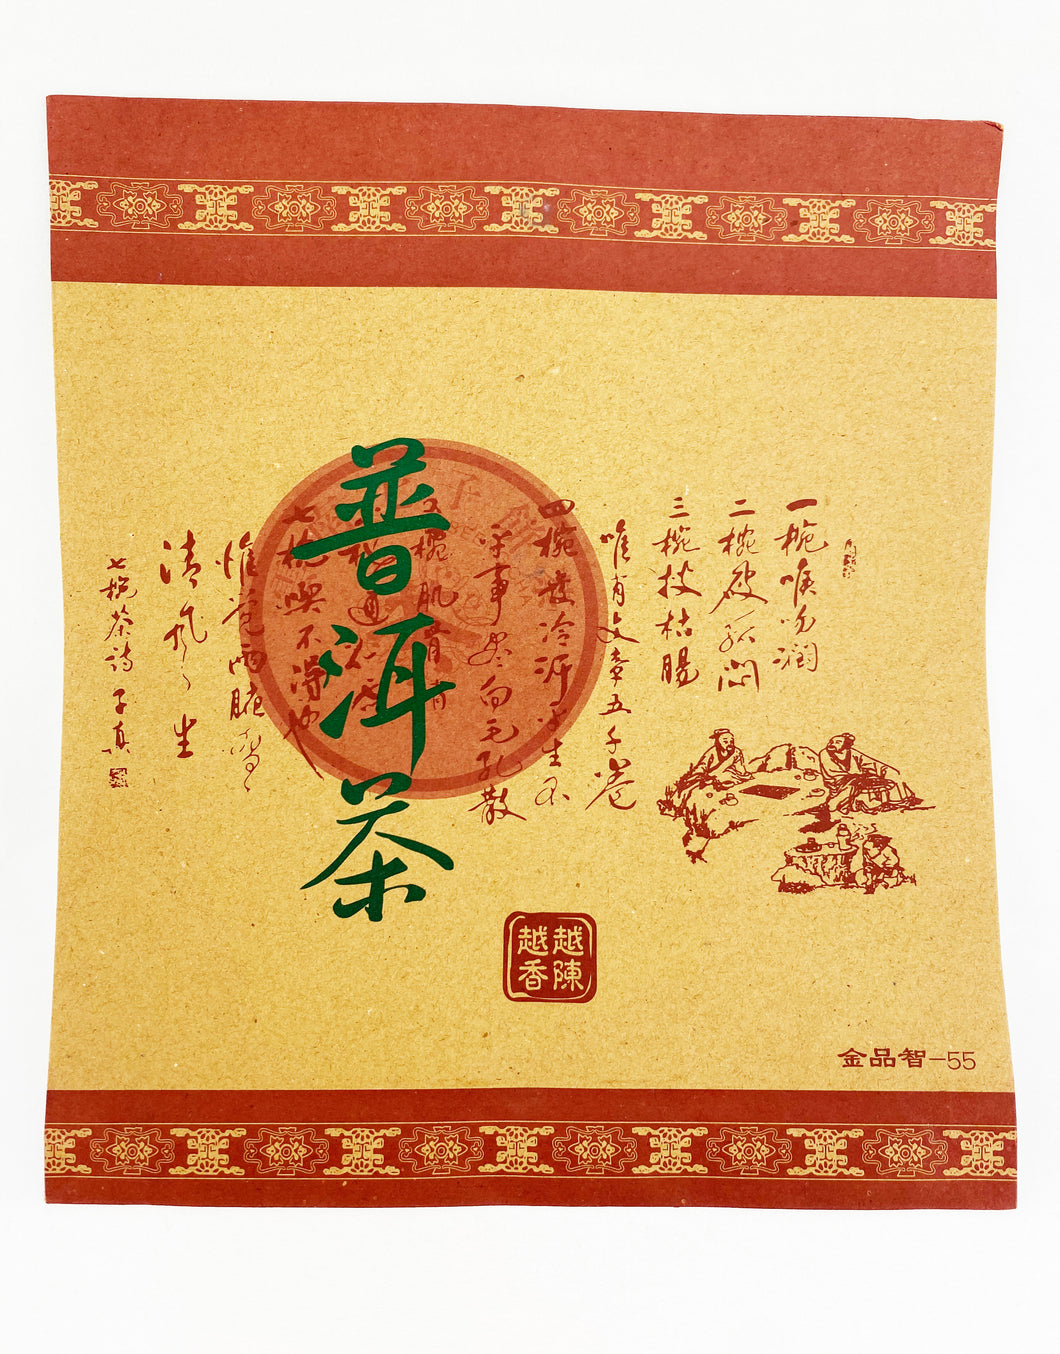 普洱茶
一椀喉吻潤
二椀破孤悶
三椀搜枯腸
唯有文章五千卷
四椀發冷汗平生不
平事盡向毛孔散
五椀肌骨清
七椀喫不得也
惟覺兩腋習習
清風〻生
七椀茶詩 子真
越陳
越香
金品智-55